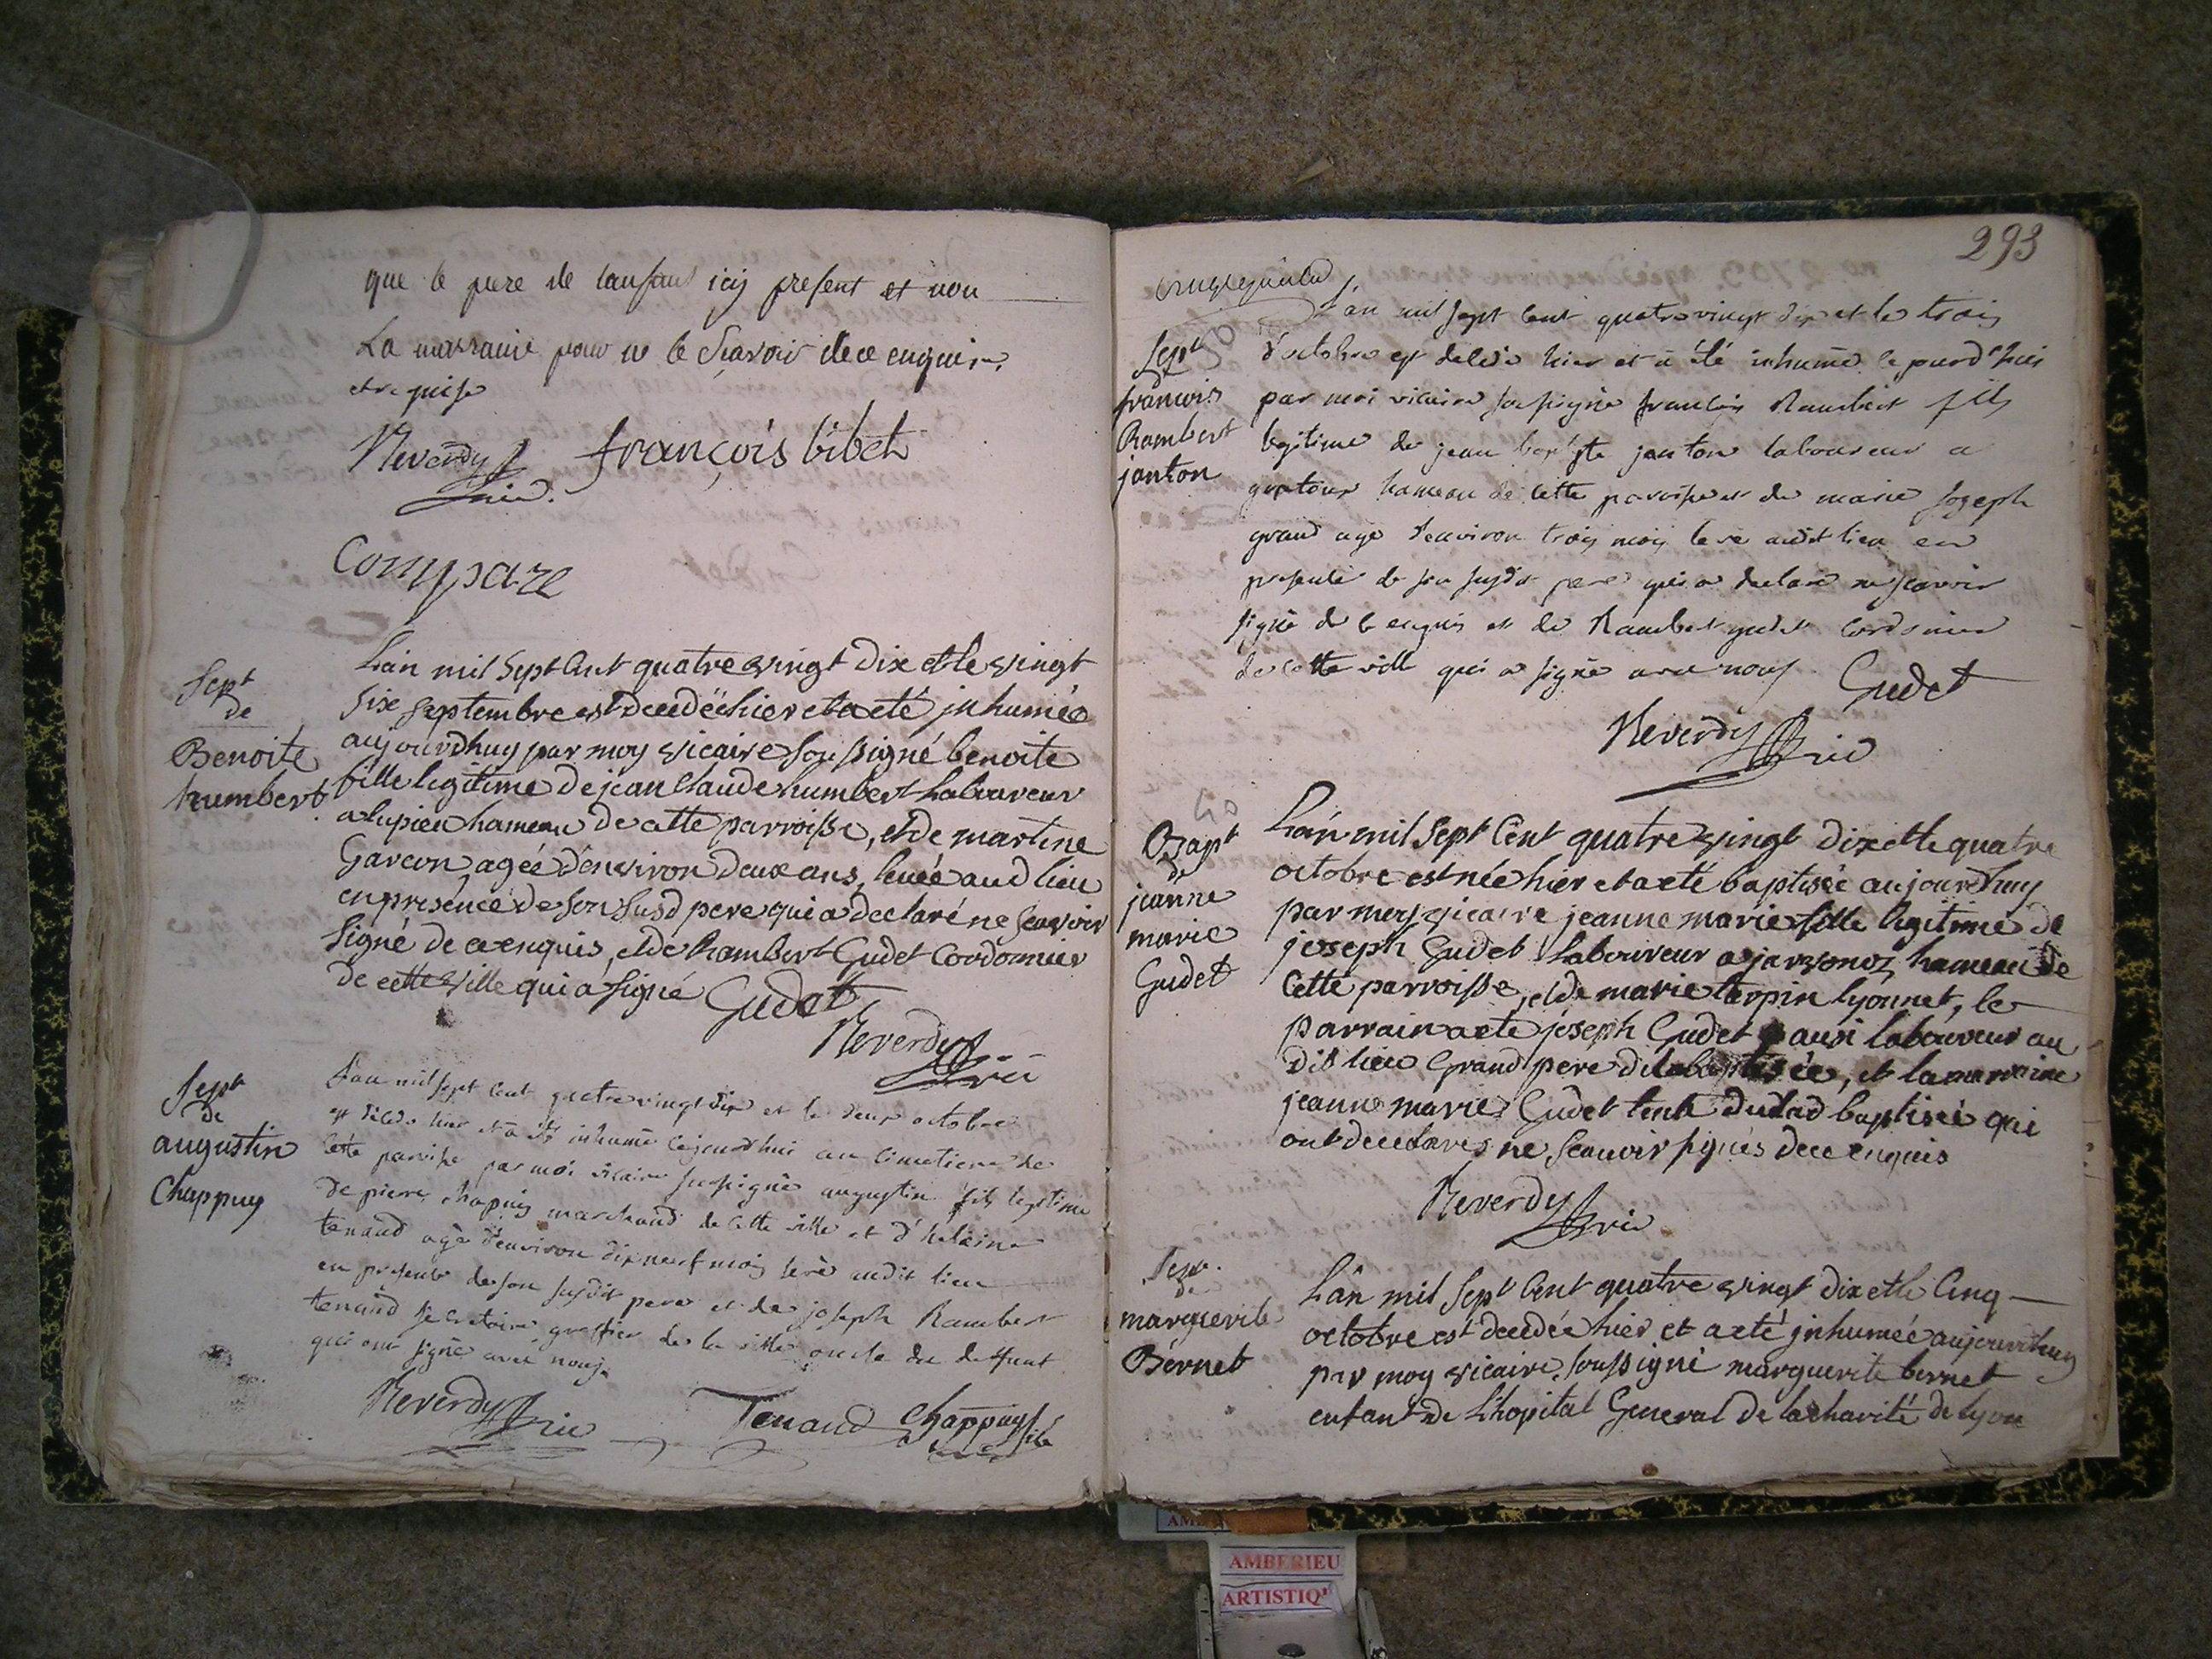 que le pere de lenfant icy present et non
La marraine pour ne le Sçavoir de ce enquise
et requise
Reverdy vic. françois bibet
Compare
Sept
de
Benoite
humbert
L'an mil Sept Cent quatre vingt dix et le vingt
Six Septembre est decedée hier et a eté inhumée
aujourdhuy par moy vicaire soussigné benoite
fille legitime de jean Claude humbert Laboureur
a lupieu hameau de cette parroisse, et de martine
Garcon, agée denviron deux ans, levée aud lieu
en présence de son Susd pere qui a declaré ne Scavoir
Signé de ce enquis, et de Rambert Gudet Cordonnier
de cette ville qui a Signé Gudet
Reverdy vic
Sept
de
augustin
Chappuy
L'an mil sept cent quatre vingt dix et le deux octobre
est décédé hier et a été inhumé cejourd'hui au cimetiere de
Cette paroisse par moi vicaire soussigné augustin fils legitime
de pierre chapuis marchand de cette ville et d'helaine
tenand agé d'environ dix neuf mois levé audit lieu
en presence de son susdit pere et de joseph Rambert
tenand secretaire greffier de la ville oncle du deffunt
qui ont signé avec nous.
Reverdy vic Tenand Chappuy
293
Sept
françois
Rambert
janton
L'an mil sept cent quatre vingt dix et le trois
d'octobre est décédé hier et a été inhumé ce jourd'hui
par moi vicaire soussigné françois Rambert fils
legitime de jean baptiste janton laboureur a
hameau de cette paroisse et de marie joseph
grand agé d'environ trois mois levé audit lieu en
presence de son susdit pere qui a declaré ne scavoir
signé de ce enquis et de Rambert gudet cordonnier
de cette ville qui a signé avec nous. Gudet
Reverdy vic
50
Bapt
de
jeanne
marie
Gudet
L'an mil Sept Cent quatre vingt dix et le quatre
octobre est née hier et a eté baptisée aujourdhuy
par moy vicaire jeanne marie fille legitime de
joseph Gudet Laboureur a jarvonoz hameau de
Cette parroisse, et de marie terpin lyonnet, le
parrain a eté joseph Gudet aussi laboureur au
dit lieu Grand pere de la baptisée, et la marraine
jeanne marie Gudet tente dudad baptisée qui
ont declarés ne Scauoir signés de ce enquis
Reverdy vic
Sept.
de
marguerite
Bernet
L'an mil Sept Cent quatre vingt dix et le Cinq
octobre est decedée hier et a eté inhumée aujourdhuy
par moy vicaire, soussigné marguerite bernet
enfant de L'hopital General de la charité de Lyon
AMBERIEU
ARTISTIQ'